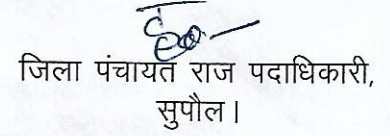 जिला पंचायत राज पदाधिकारी,
सुपौल।